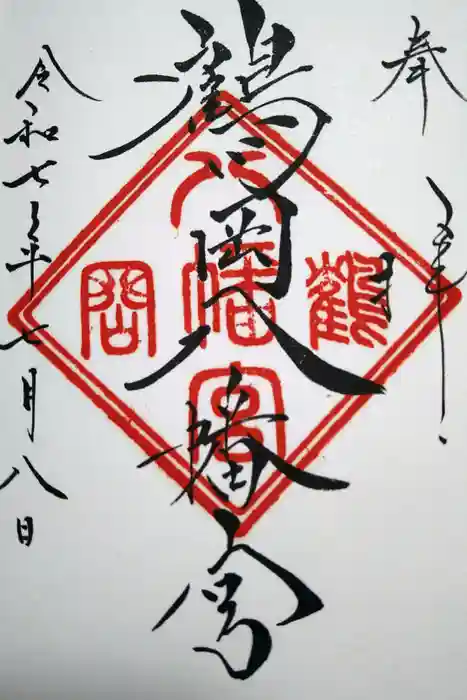 奉拝
鶴岡八幡宮
令和七年七月八日
鶴
八幡宮
岡